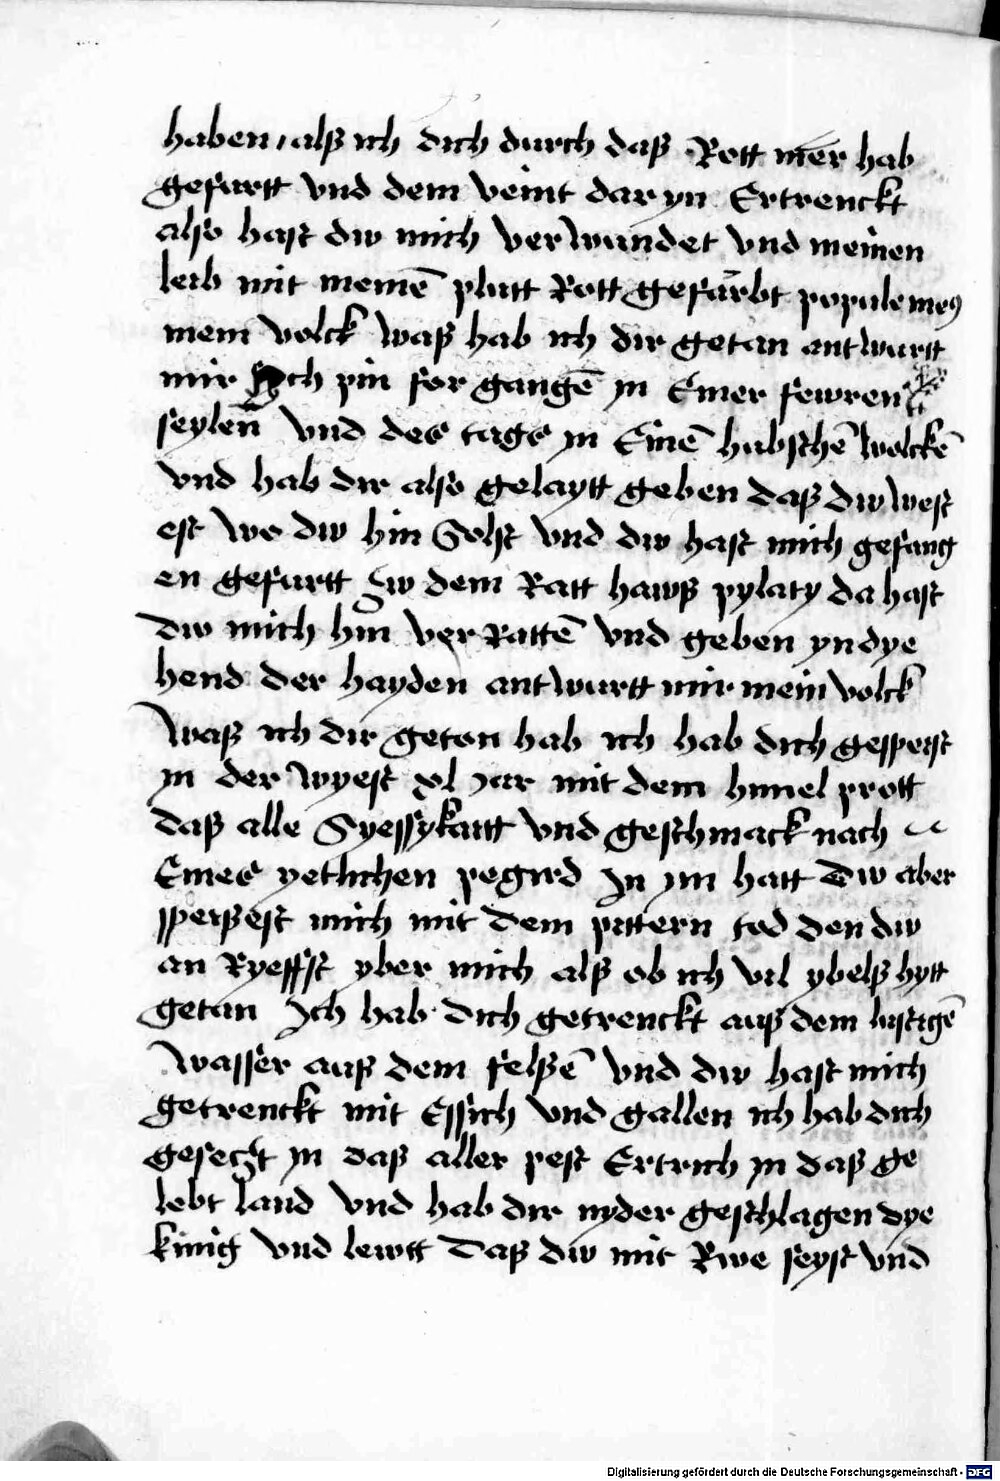 haben / alß ich dich durch daß Rott mer hab
gefurtt vnd dem veint dar yn Ertrenckt
also hast dw mich ver wundet vnd meinen
leib mit meinē plutt Rott gefarbt popule meꝯ
mein volck waß hab ich dir getan antwurtt
mir Ich pin for gangē in Einer fewren
seylen vnd des tags in Einē hubschē wolckē
vnd hab dir also gelaytt geben daß dw west
est wo dw hin Solst vnd dw hast mich gefang
en gefurtt Zw dem Ratt hawß pylaty da hast
dw mich hin ver Rattē vnd geben yn dye
hend der hayden antwurtt mir mein volck
waß ich dir geton hab ich hab dich gespeist
in der wyest xl Jar mit dem himel prott
daß alle Syessykaitt vnd geschmack nach
Eines yetlichen pegird In im hatt Dw aber
speißest mich mit dem pittern tod den dw
an Ryeffst yber mich alß ob ich vil ybelß hytt
getan Ich hab dich getrenckt auß dem lustigē
wasser auß dem felßē vnd dw hast mich
getrenckt mit Essich vnd gallen ich hab dich
geseczt in daß aller pest Ertrich in daß ge
lebt land vnd hab dir nyder geschlagen dye
kinig vnd lewtt Daß dw mit Rwe seyst vnd
Digitalisierung gefördert durch die Deutsche Forschungsgemeinschaft - DFG